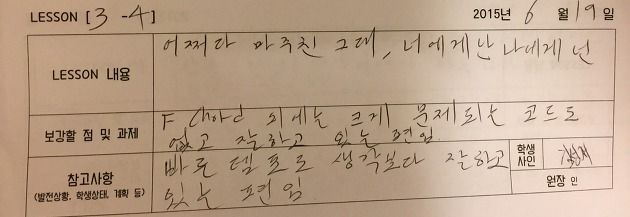 LESSON [3-4] 2015년 6월 19일
LESSON 내용
어쩌다 마주친 그대, 너에게 난 나에게 넌
보강할 점 및 과제
F chord 외에는 크게 문제되는 코드도
없고 잘하고 있는 편임.
참고사항
(발전상황, 학생상태, 계획 등)
빠른 템포도 생각보다 잘하고
있는 편임.
학생
사인
원장 인